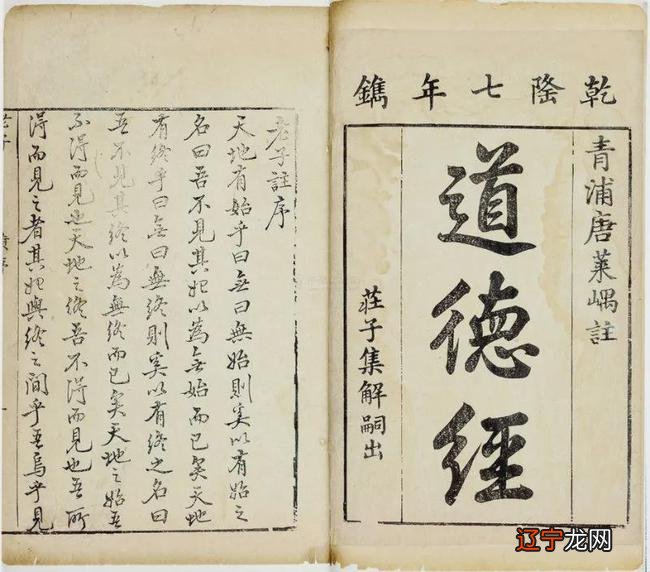 乾隆七年鐫
青浦唐萊嵎註
道德經
荘子集解嗣出
老子註序
天地有始乎曰无曰無始則奚以有始之
名曰吾不見其始以為无始而已矣天地
有終乎曰无曰無終則奚以有終之名曰
吾不見其終以為無終而已矣天地之始吾
不得而見也天地之終吾不得而見也吾所
得而見之者其始與終之間乎吾烏乎見
辽宁龙网